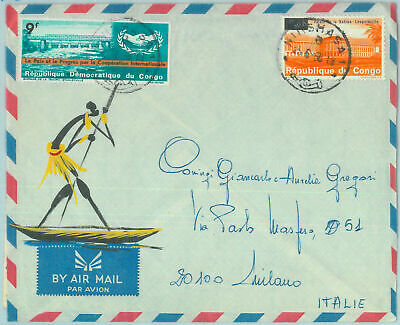 9F
La Paix et le Progrès par la Coopération Internationale
République Démocratique du Congo
République du Congo
KINSHASA 1
Coniugi Giancarlo e Aurelia Gregori
Via Paolo 51
20100 Milano
ITALIE
BY AIR MAIL
PAR AVION